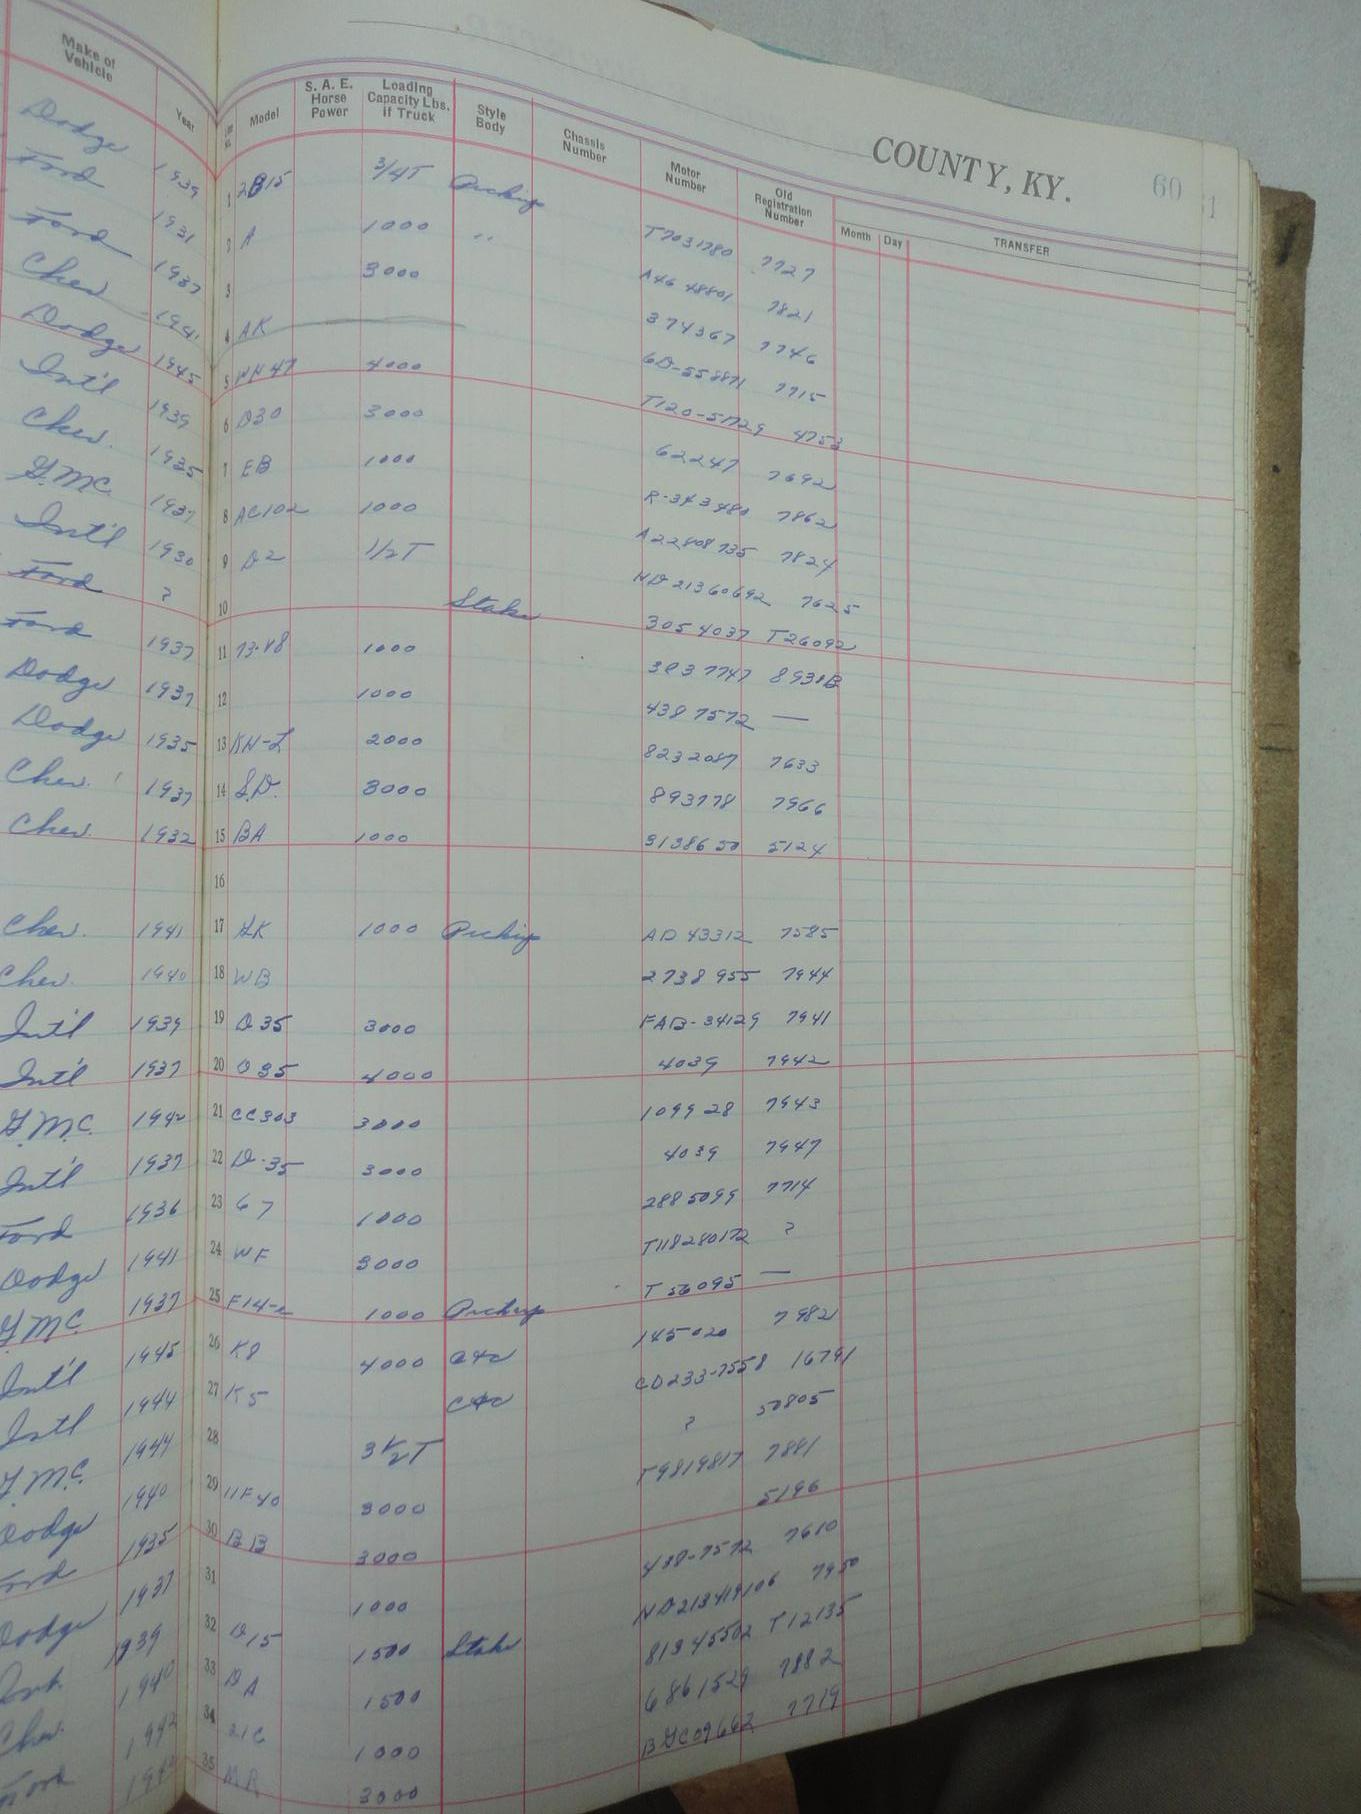 COUNTY, KY. 60 61
Make of Vehicle Year Line No. Model S. A. E. Horse Power Loading Capacity Lbs. if Truck Style Body Chassis Number Motor Number Old Registration Number Month Day TRANSFER
Dodge 1939 1 2B15 3/4T Pickup T7031780 7727
Ford 1931 2 A 1000 " A46 48801 7821
Ford 1937 3 3000 374367 7746
Chev 1941 4 AK 6D-558871 7715
Dodge 1945 5 WH47 4000 T120-51729 4753
Int'l 1939 6 D30 3000 62247 7692
Chev. 1935 7 EB 1000 R-343480 7862
G.M.C. 1937 8 AC102 1000 A22808735 7824
Int'l 1930 9 D2 1/2T HD21360692 7625
Ford ? 10 Stake 3054037 T26092
Ford 1937 11 73-48 1000 3037747 8931B
Dodge 1937 12 1000 4387572 —
Dodge 1935 13 KH-L 2000 8232087 7633
Chev. 1937 14 S.D. 3000 893778 7966
Chev. 1932 15 BA 1000 3138650 5124
16
Chev. 1941 17 AK 1000 Pickup AD43312 7585
Chev. 1940 18 WB 2738955 7944
Int'l 1939 19 D35 3000 FAB-34129 7941
Int'l 1937 20 D35 4000 4039 7942
G.M.C. 1942 21 CC303 3000 109928 7943
Int'l 1937 22 D-35 3000 4039 7947
Ford 1936 23 67 1000 2885099 7714
Dodge 1941 24 WF 3000 T118280172 ?
G.M.C. 1937 25 1000 Pickup T56095 —
Int'l 1945 26 K8 4000 C&C 145020 7982
Intl 1944 27 K5 C&C CD233-7558 16791
G.M.C. 1944 28 3 1/2T ? 50805
Dodge 1940 29 3000 T9819817 7881
Ford 1935 30 BB 3000 5196
Dodge 1937 31 1000 438-7572 7610
1939 32 D15 1500 Stake HD213419106 7950
Chev 1940 33 DA 1500 81345502 T12135
Ford 1942 34 21C 1000 6861529 7882
35 MR 3000 7719